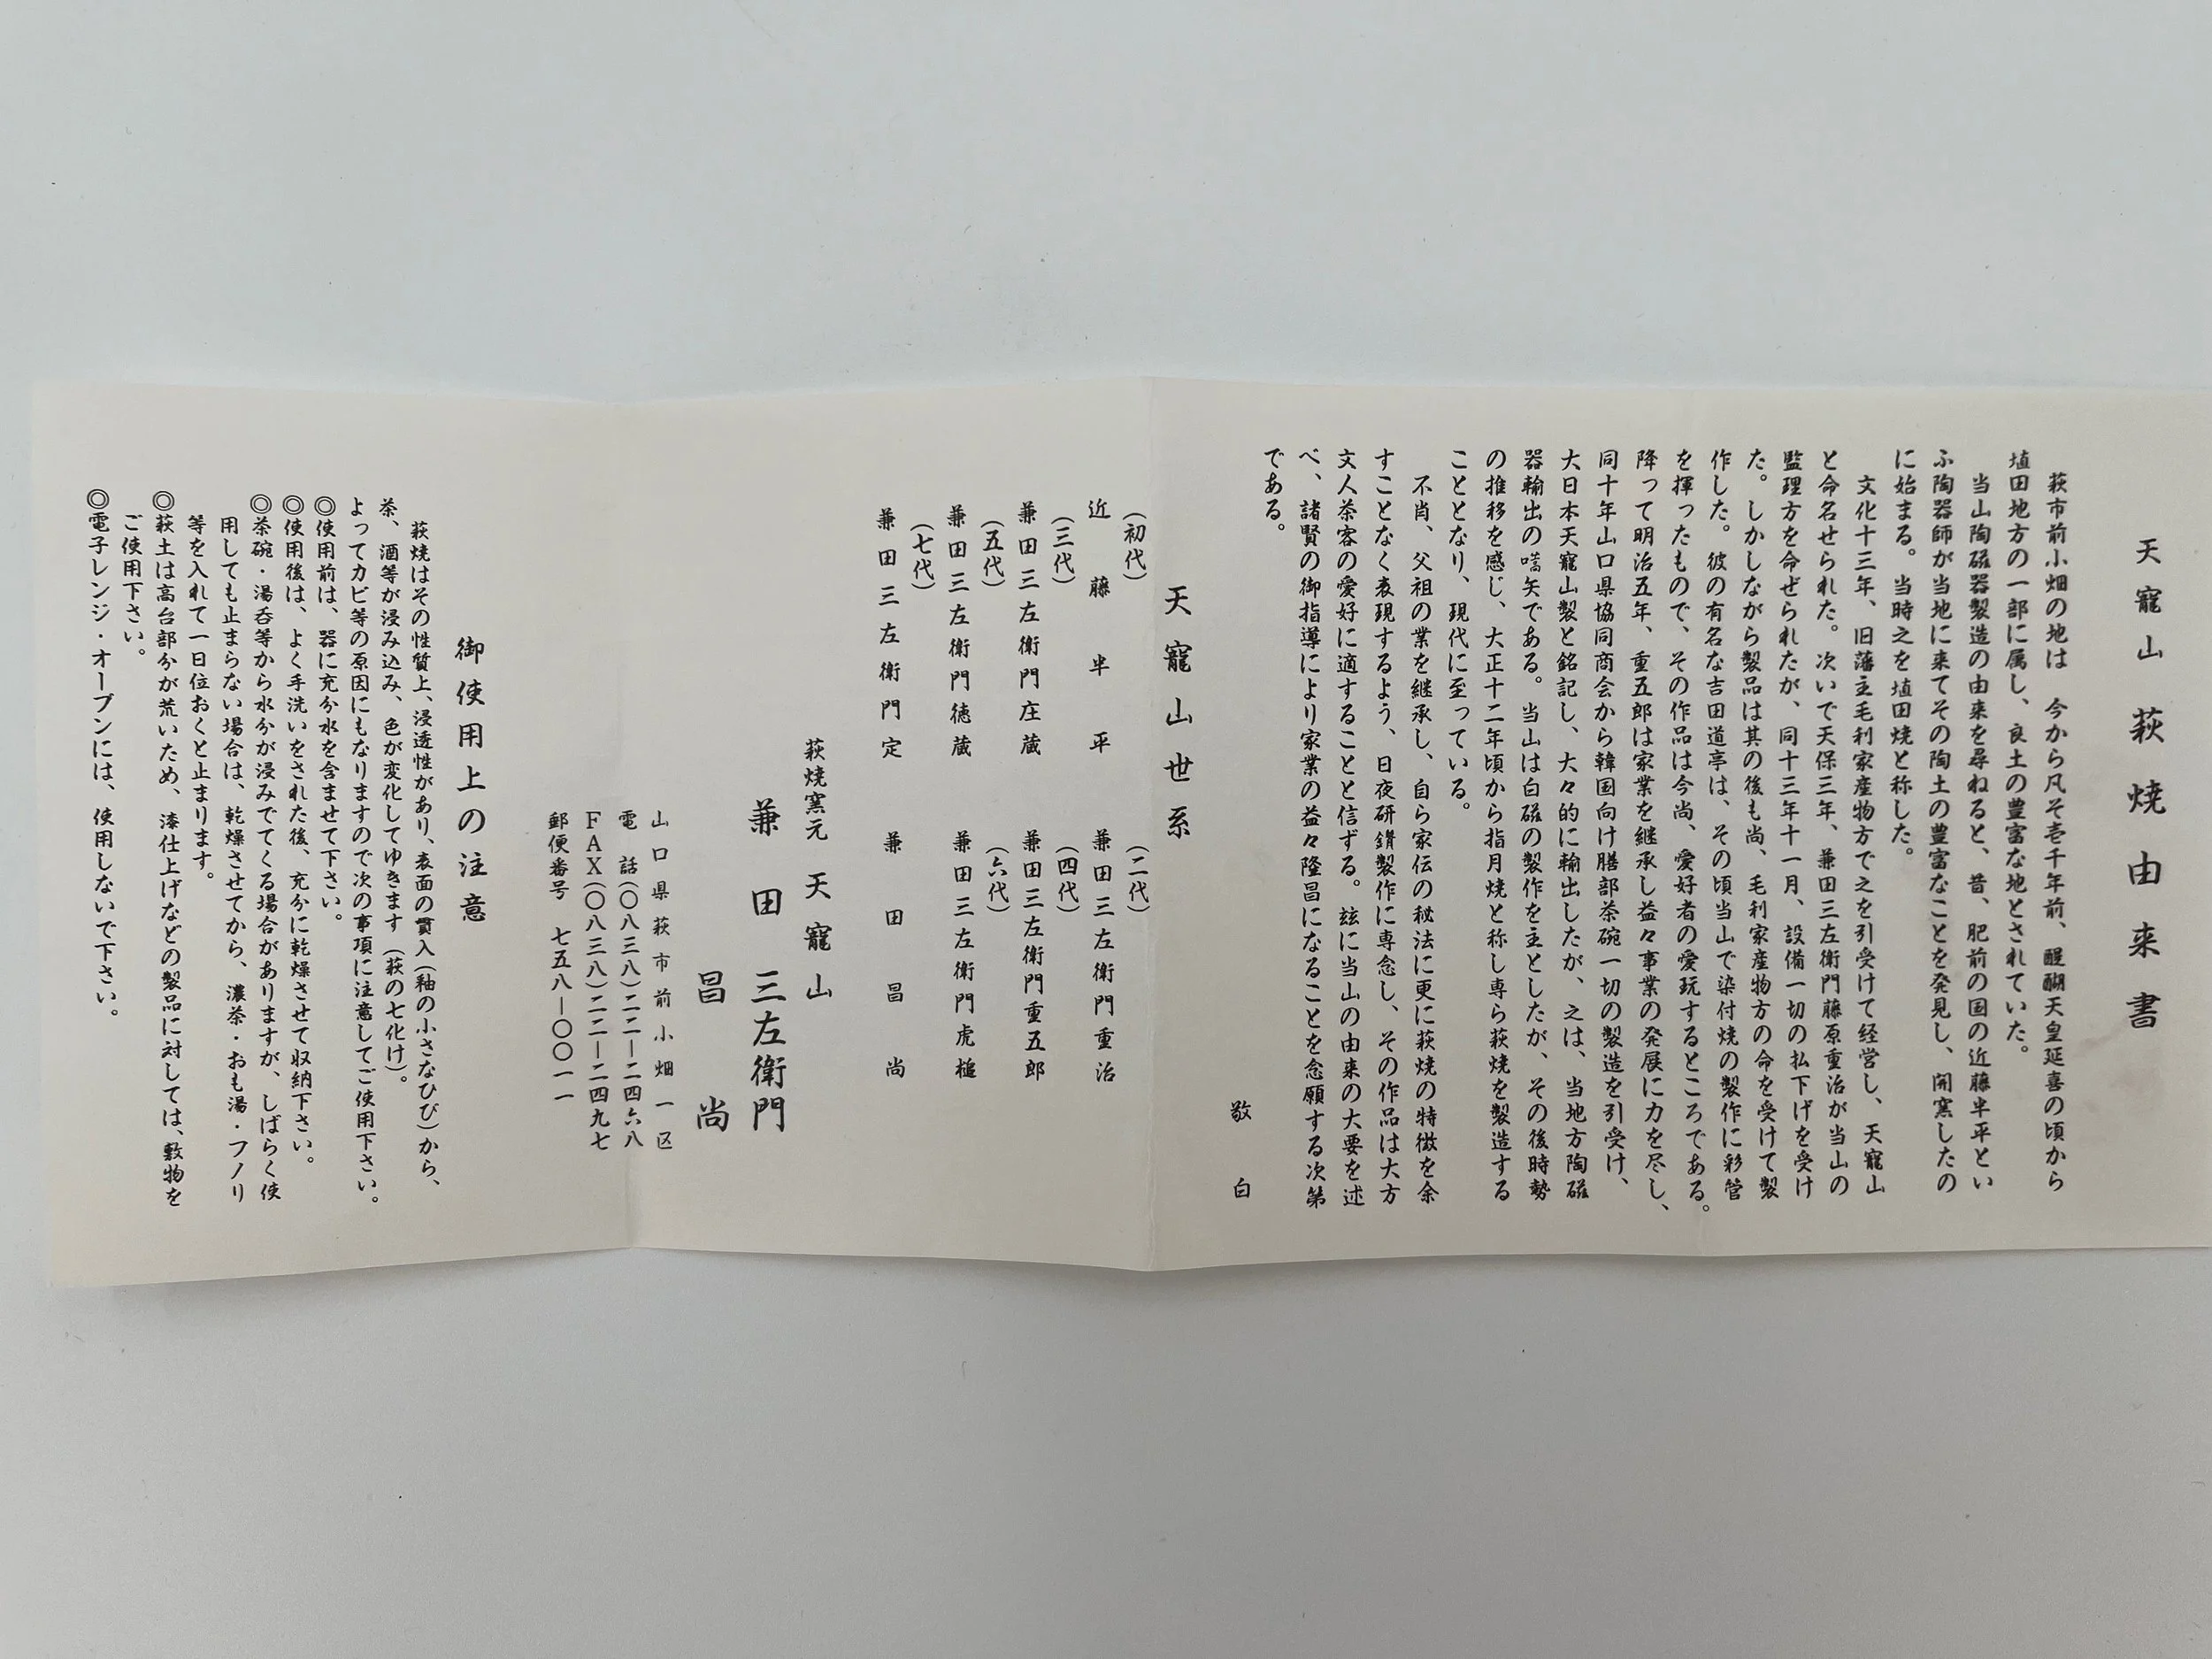 天寵山萩焼由来書
萩市前小畑の地は　今から凡そ壱千年前、醍醐天皇延喜の頃から
埴田地方の一部に属し、良土の豊富な地とされていた。
当山陶磁器製造の由来を尋ねると、昔、肥前の国の近藤半平とい
ふ陶器師が当地に来てその陶土の豊富なことを発見し、開窯したの
に始まる。当時之を埴田焼と称した。
文化十三年、旧藩主毛利家産物方で之を引受けて経営し、天寵山
と命名せられた。次いで天保三年、兼田三左衛門藤原重治が当山の
監理方を命ぜられたが、同十三年十一月、設備一切の払下げを受け
た。しかしながら製品は其の後も尚、毛利家産物方の命を受けて製
作した。彼の有名な吉田道亭は、その頃当山で染付焼の製作に彩管
を揮ったもので、その作品は今尚、愛好者の愛玩するところである。
降って明治五年、重五郎は家業を継承し益々事業の発展に力を尽し、
同十年山口県協同商会から韓国向け膳部茶碗一切の製造を引受け、
大日本天寵山製と銘記し、大々的に輸出したが、之は、当地方陶磁
器輸出の嚆矢である。当山は白磁の製作を主としたが、その後時勢
の推移を感じ、大正十二年頃から指月焼と称し専ら萩焼を製造する
こととなり、現代に至っている。
不肖、父祖の業を継承し、自ら家伝の秘法に更に萩焼の特徴を余
すことなく表現するよう、日夜研鑚製作に専念し、その作品は大方
文人茶客の愛好に適することと信ずる。玆に当山の由来の大要を述
べ、諸賢の御指導により家業の益々隆昌になることを念願する次第
である。
敬白
天寵山世系
（初代）　（二代）
近藤半平　兼田三左衛門重治
（三代）　（四代）
兼田三左衛門庄蔵　兼田三左衛門重五郎
（五代）　（六代）
兼田三左衛門徳蔵　兼田三左衛門虎槌
（七代）
兼田三左衛門定　兼田昌尚
萩焼窯元　天寵山
兼田三左衛門
昌尚
山口県萩市前小畑一区
電話（〇八三八）二二－二四六八
ＦＡＸ（〇八三八）二二－二四九七
郵便番号　七五八－〇〇一一
御使用上の注意
萩焼はその性質上、浸透性があり、表面の貫入（釉の小さなひび）から、
茶、酒等が浸み込み、色が変化してゆきます（萩の七化け）。
よってカビ等の原因にもなりますので次の事項に注意してご使用下さい。
◎使用前は、器に充分水を含ませて下さい。
◎使用後は、よく手洗いをされた後、充分に乾燥させて収納下さい。
◎茶碗・湯呑等から水分が浸みでてくる場合がありますが、しばらく使
用しても止まらない場合は、乾燥させてから、濃茶・おも湯・フノリ
等を入れて一日位おくと止まります。
◎萩土は高台部分が荒いため、漆仕上げなどの製品に対しては、敷物を
ご使用下さい。
◎電子レンジ・オーブンには、使用しないで下さい。